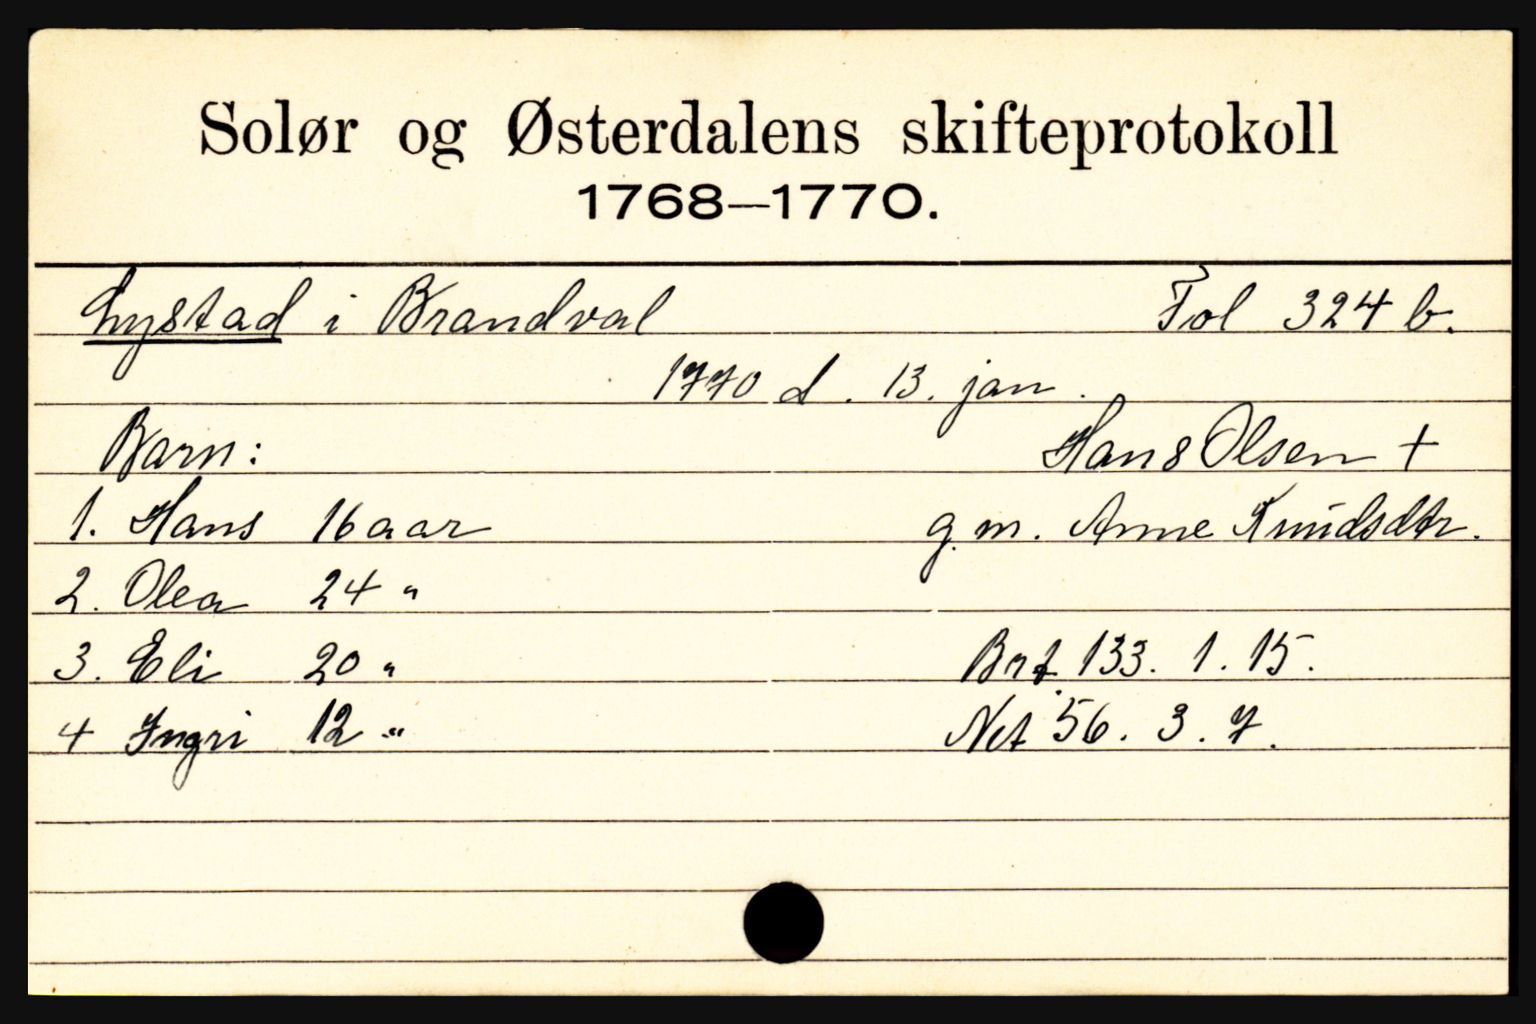 Solør og Østerdalens skifteprotokoll
1768—1770.
Lystad i Brandval Fol 324 b.
1770 d. 13. jan.
Barn: Hans Olsen +
1. Hans 16 aar g. m. Anne Knudsdtr.
2. Olea 24 "
3. Eli 20 " Brt. 133. 1. 15.
4 Ingri 12 " Net 56. 3. 7.